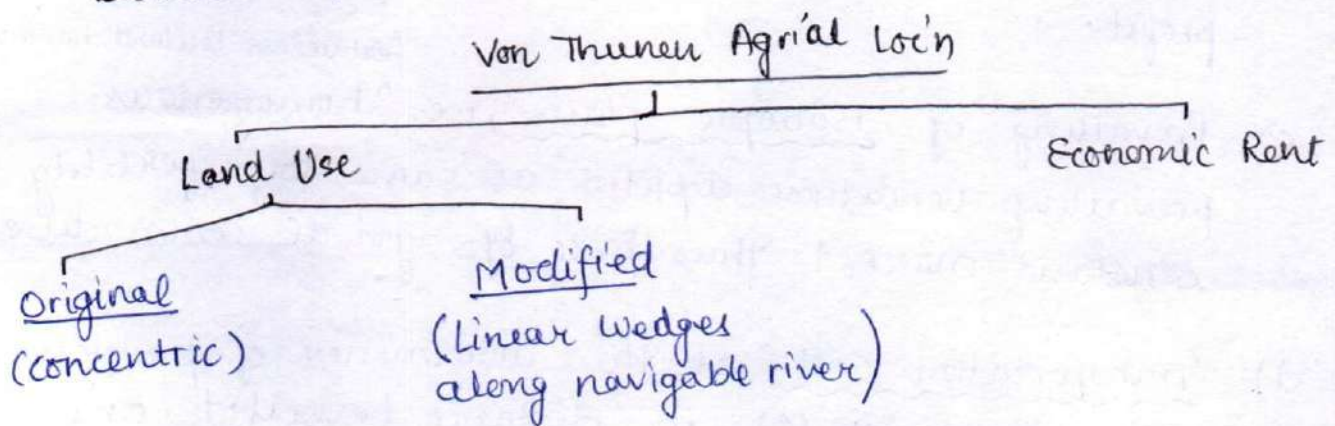 Von Thunen Agri'al Loc'n
Land Use
Economic Rent
Original
(concentric)
Modified
(Linear Wedges
along navigable river)